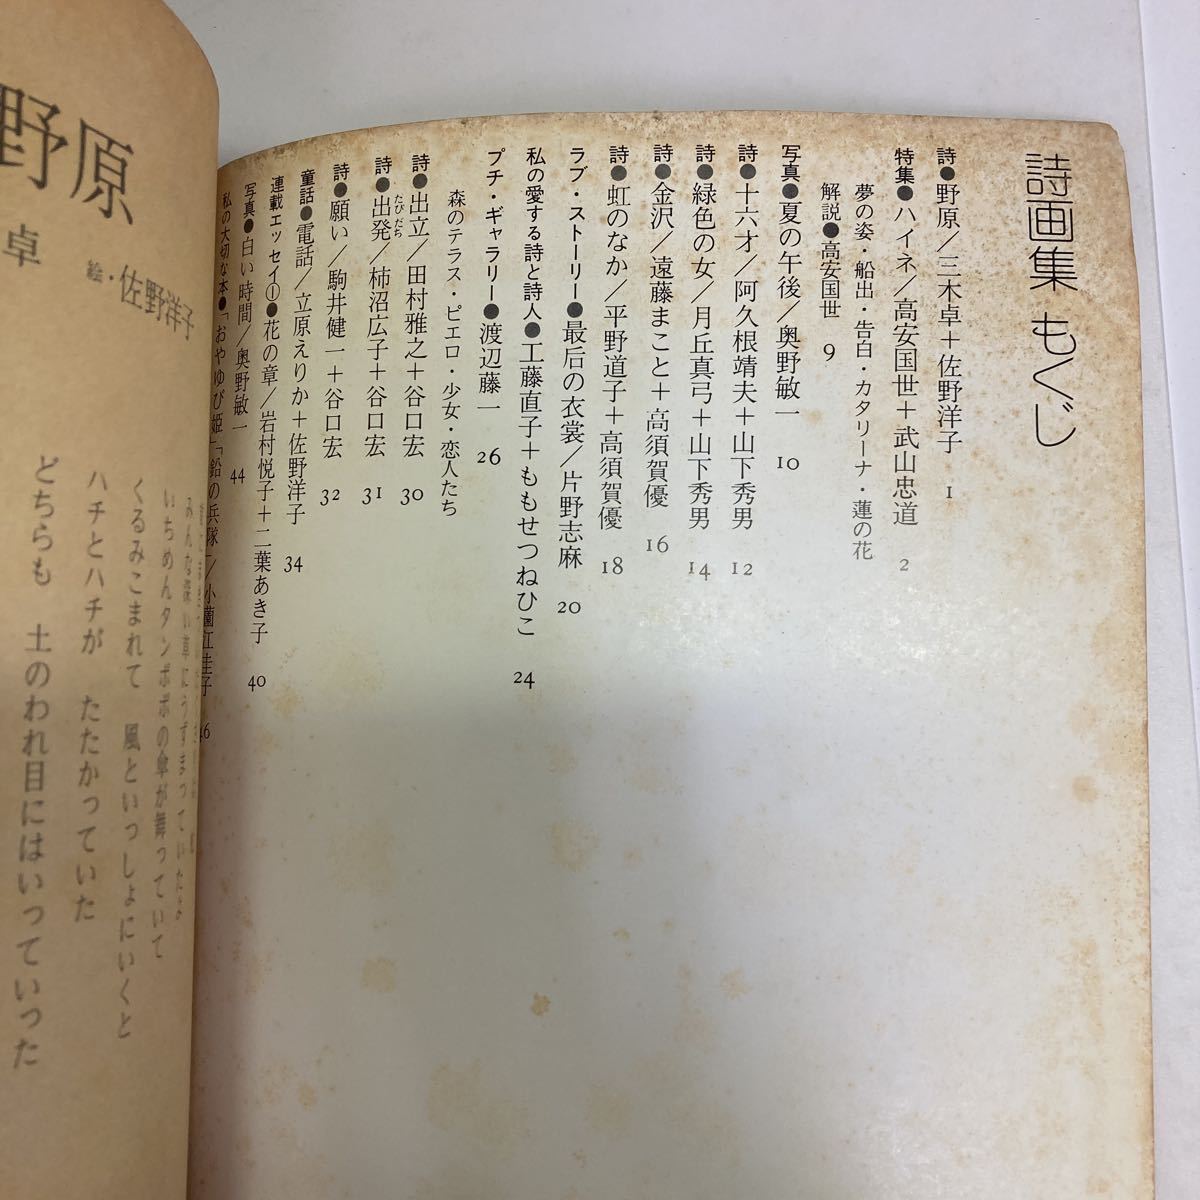 詩画集 もくじ
詩●野原／三木卓＋佐野洋子 1
特集●ハイネ／高安国世＋武山忠道 2
夢の姿・船出・告白・カタリーナ・蓮の花
解説●高安国世 9
写真●夏の午後／奥野敏一 10
詩●十六才／阿久根靖夫＋山下秀男 12
詩●緑色の女／月丘真弓＋山下秀男 14
詩●金沢／遠藤まこと＋高須賀優 16
詩●虹のなか／平野道子＋高須賀優 18
ラブ・ストーリー●最后の衣裳／片野志麻 20
私の愛する詩と詩人●工藤直子＋ももせつねひこ 24
プチ・ギャラリー●渡辺藤一 26
森のテラス・ピエロ・少女・恋人たち
詩●出立／田村雅之＋谷口宏 30
詩●出発／柿沼広子＋谷口宏 31
たびだち
詩●願い／駒井健一＋谷口宏 32
童話●電話／立原えりか＋佐野洋子 34
連載エッセイ①●花の章／岩村悦子＋二葉あき子 40
写真●白い時間／奥野敏一 44
私の大切な本●「おやゆび姫」「鉛の兵隊」／小薗江圭子 46
野原
卓
絵・佐野洋子
みんな深い草にうずまっていたよ
いちめんタンポポの傘が舞っていて
くるみこまれて 風といっしょにいくと
ハチとハチが たたかっていた
どちらも 土のわれ目にはいっていった